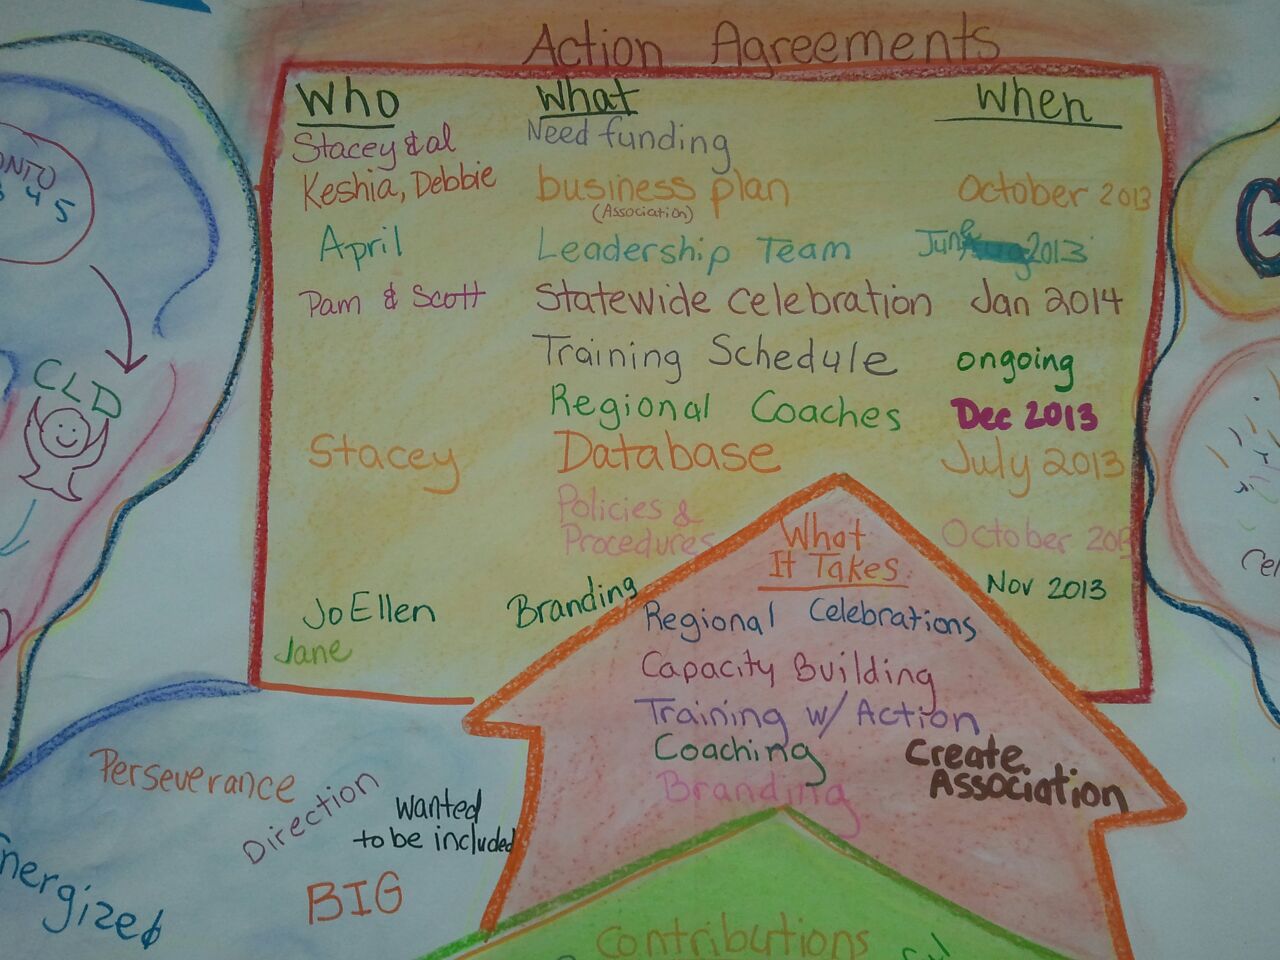 Action Agreements
Who What When
Stacey & al Need funding
Keshia, Debbie business plan October 2013
(Association)
April Leadership Team June 2013
Pam & Scott Statewide Celebration Jan 2014
Training Schedule ongoing
Regional Coaches Dec 2013
Stacey Database July 2013
Policies &
Procedures October 2013
JoEllen Branding Nov 2013
Jane
What
It Takes
Regional Celebrations
Capacity Building
Training w/ Action
Coaching
Branding
Create
Association
Contributions
Perseverance
Direction
Wanted
to be included
BIG
Energized
ONTO
3 4 5
CLD
Cel